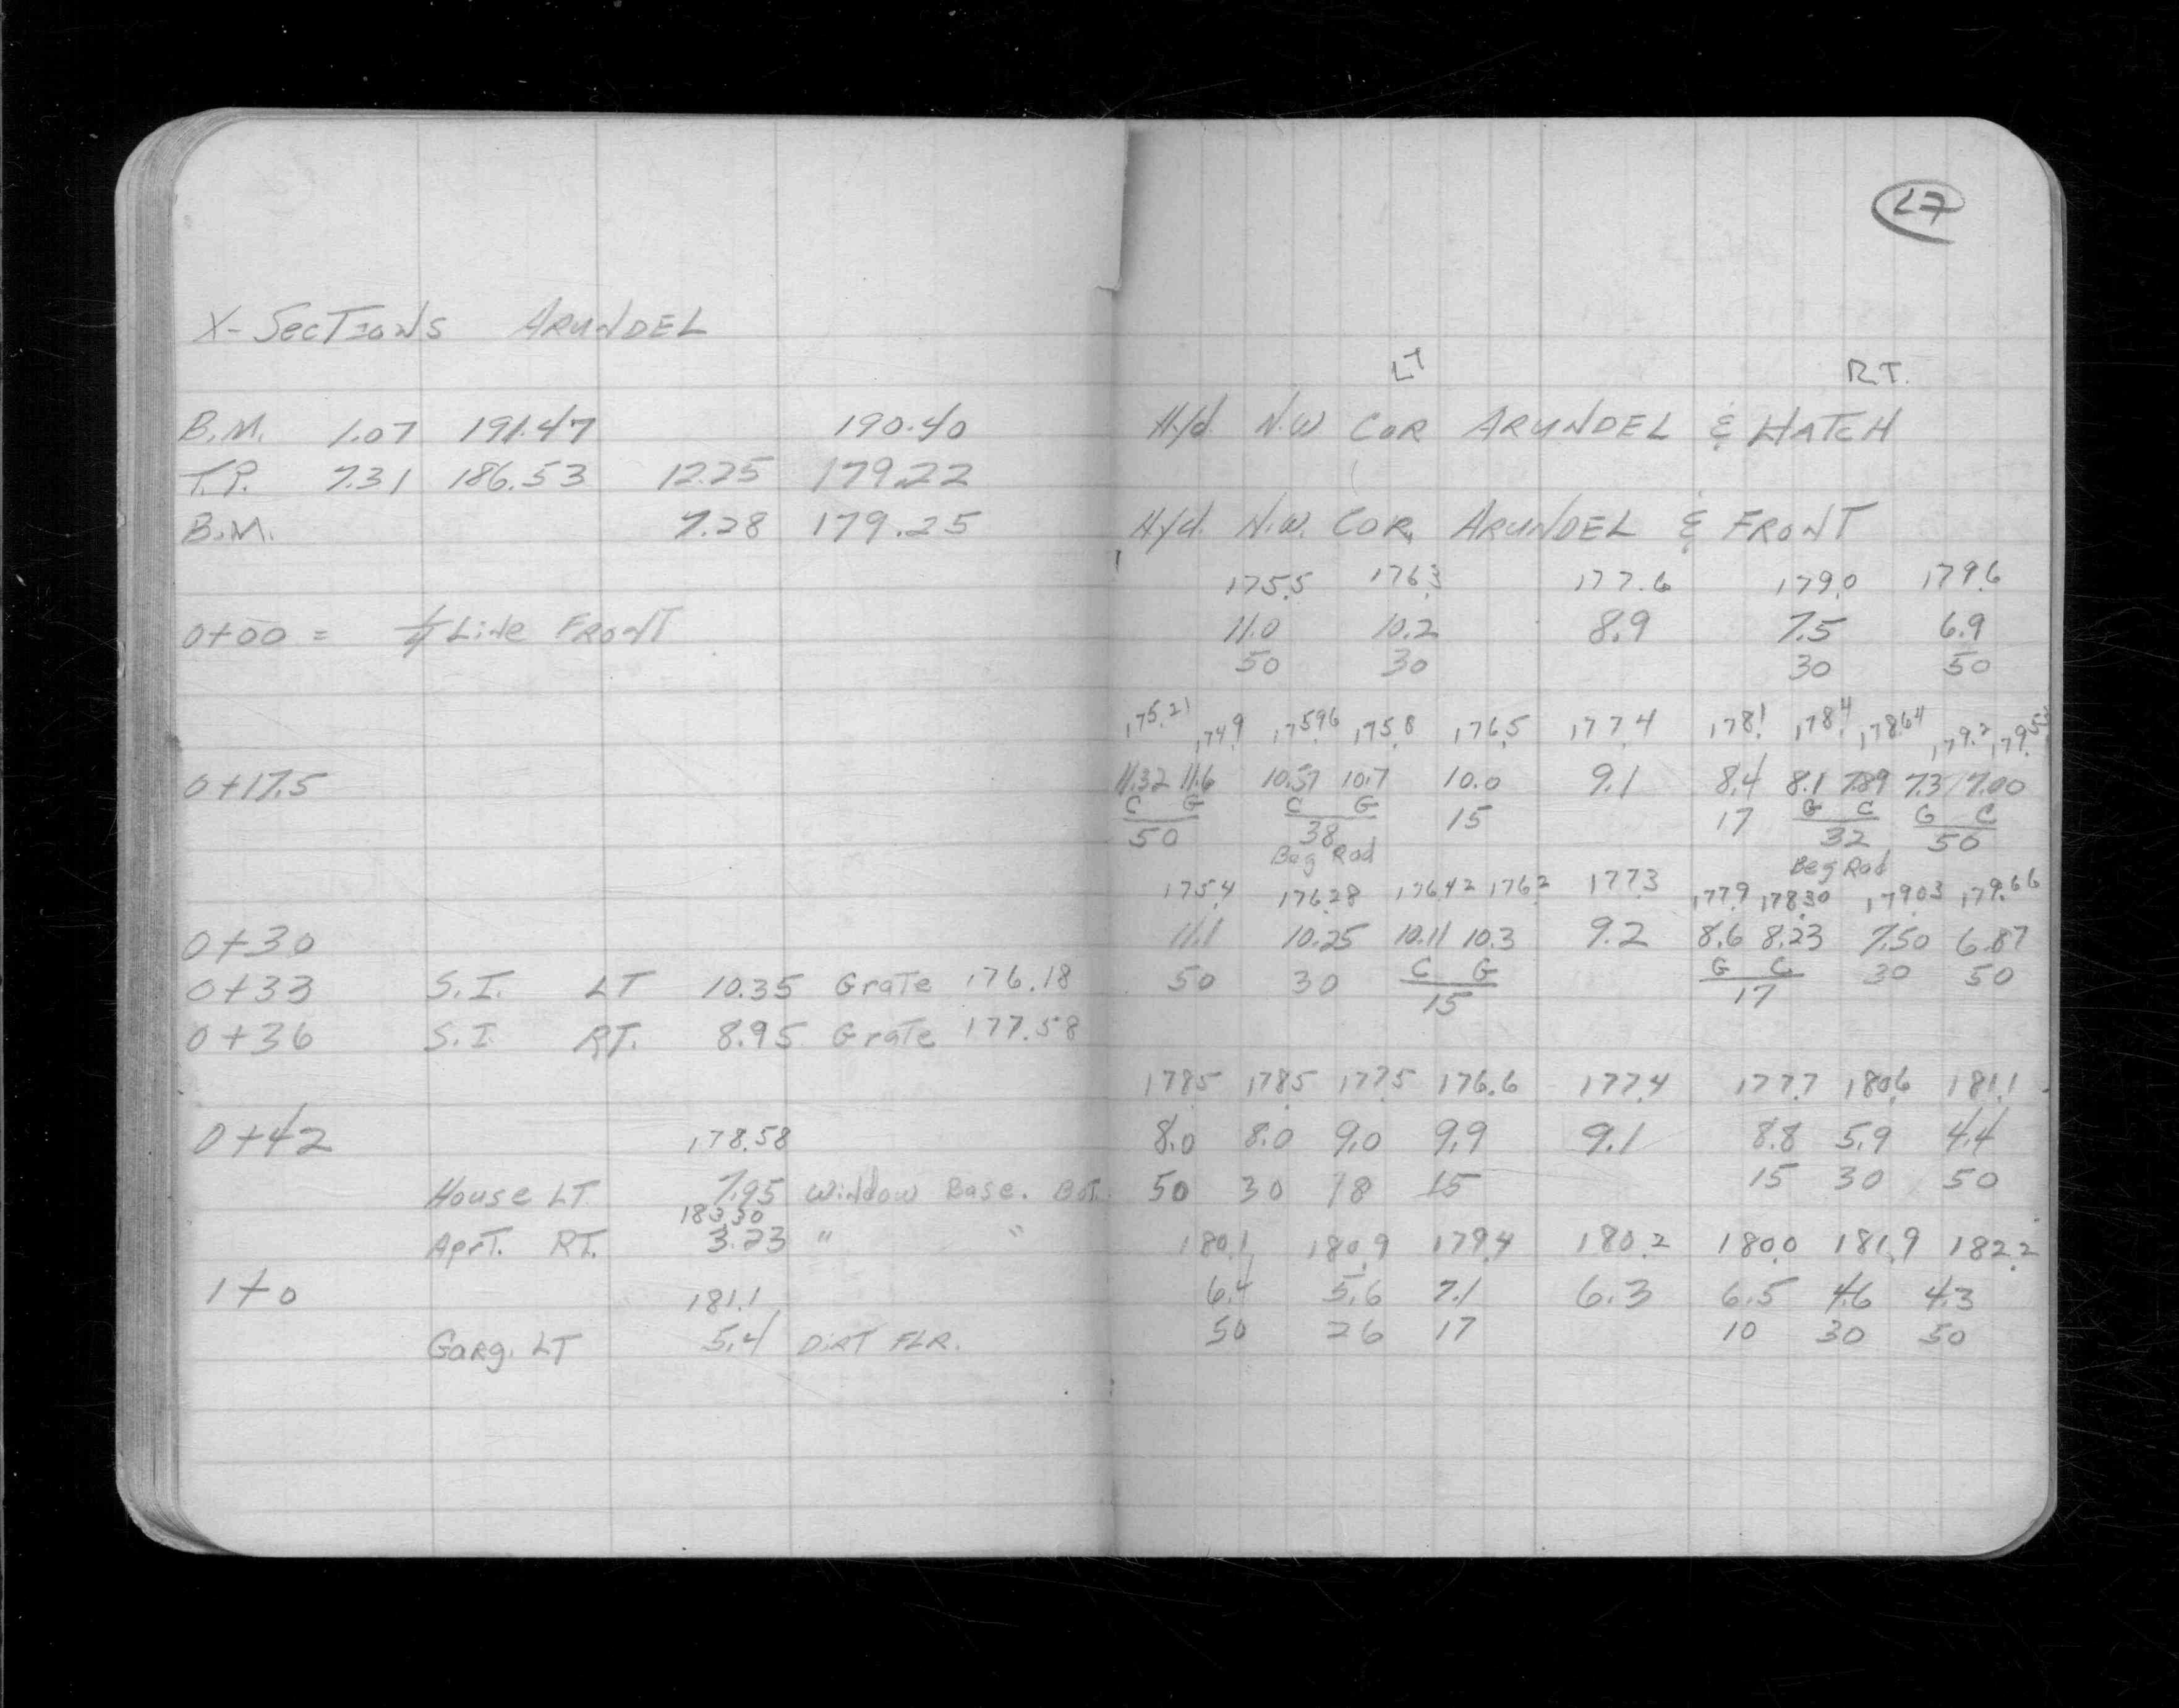 27
X-Sections Arundel
LT R.T.
B.M. 1.07 191.47 190.40 Hyd. N.W. Cor Arundel & Hatch
T.P. 7.31 186.53 12.25 179.22
B.M. 7.28 179.25 Hyd. N.W. Cor. Arundel & Front
175.5 176.3 177.6 179.0 179.6
0+00 = ⅊ Line Front 11.0 10.2 8.9 7.5 6.9
50 30 30 50
175.21 174.9 175.96 175.8 176.5 177.4 178.1 178.4 178.64 179.2 179.53
0+17.5 11.32 11.6 10.57 10.7 10.0 9.1 8.4 8.1 7.89 7.3 7.00
C G C G 15 17 G C G C
50 38 32 50
Beg Rad Beg Rad
175.4 176.28 176.42 176.2 177.3 177.9 178.30 179.03 179.66
0+30 11.1 10.25 10.11 10.3 9.2 8.6 8.23 7.50 6.87
0+33 S.I. LT 10.35 Grate 176.18 50 30 C G G C 30 50
15 17
0+36 S.I. RT. 8.95 Grate 177.58
178.5 178.5 177.5 176.6 177.4 177.7 180.6 181.1
0+42 178.58 8.0 8.0 9.0 9.9 9.1 8.8 5.9 4.4
House LT. 7.95 Window Base. Bot. 50 30 18 15 15 30 50
183.30
Aprt. RT. 3.23 " " 180.1 180.9 179.4 180.2 180.0 181.9 182.2
1+0 181.1 6.4 5.6 7.1 6.3 6.5 4.6 4.3
Garg. LT 5.4 Dirt Flr. 50 26 17 10 30 50